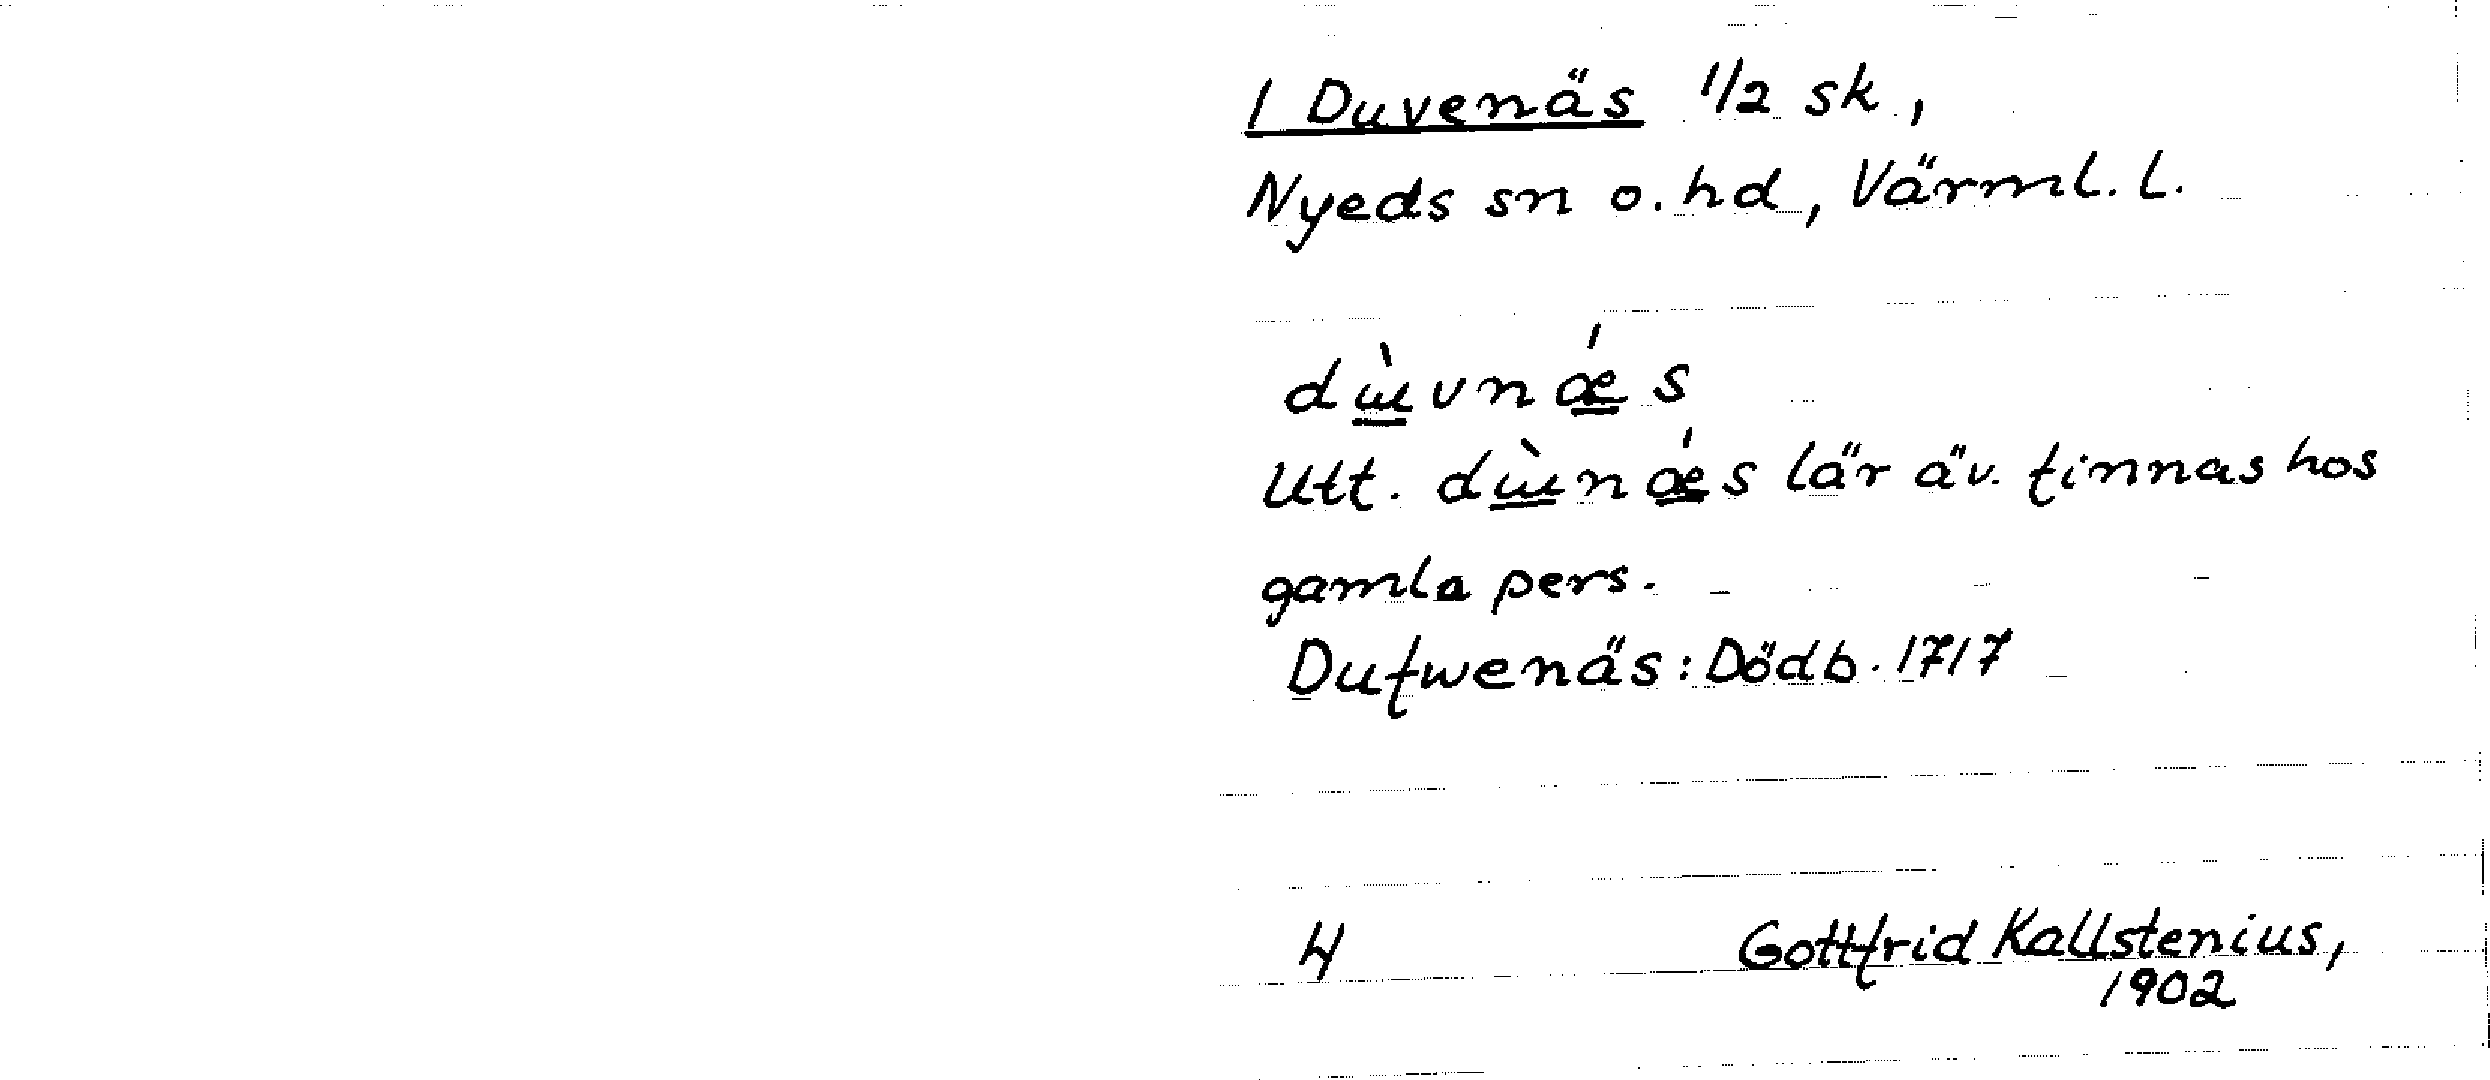 1 Duvenäs 1/2 sk.,
Nyeds sn o. hd, Värml. l.
dɯ̀vnǽs
Utt. dɯ̀nǽs lär äv. finnas hos
gamla pers.
Dufwenäs: Dödb. 1717
4 Gottfrid Kallstenius,
1902